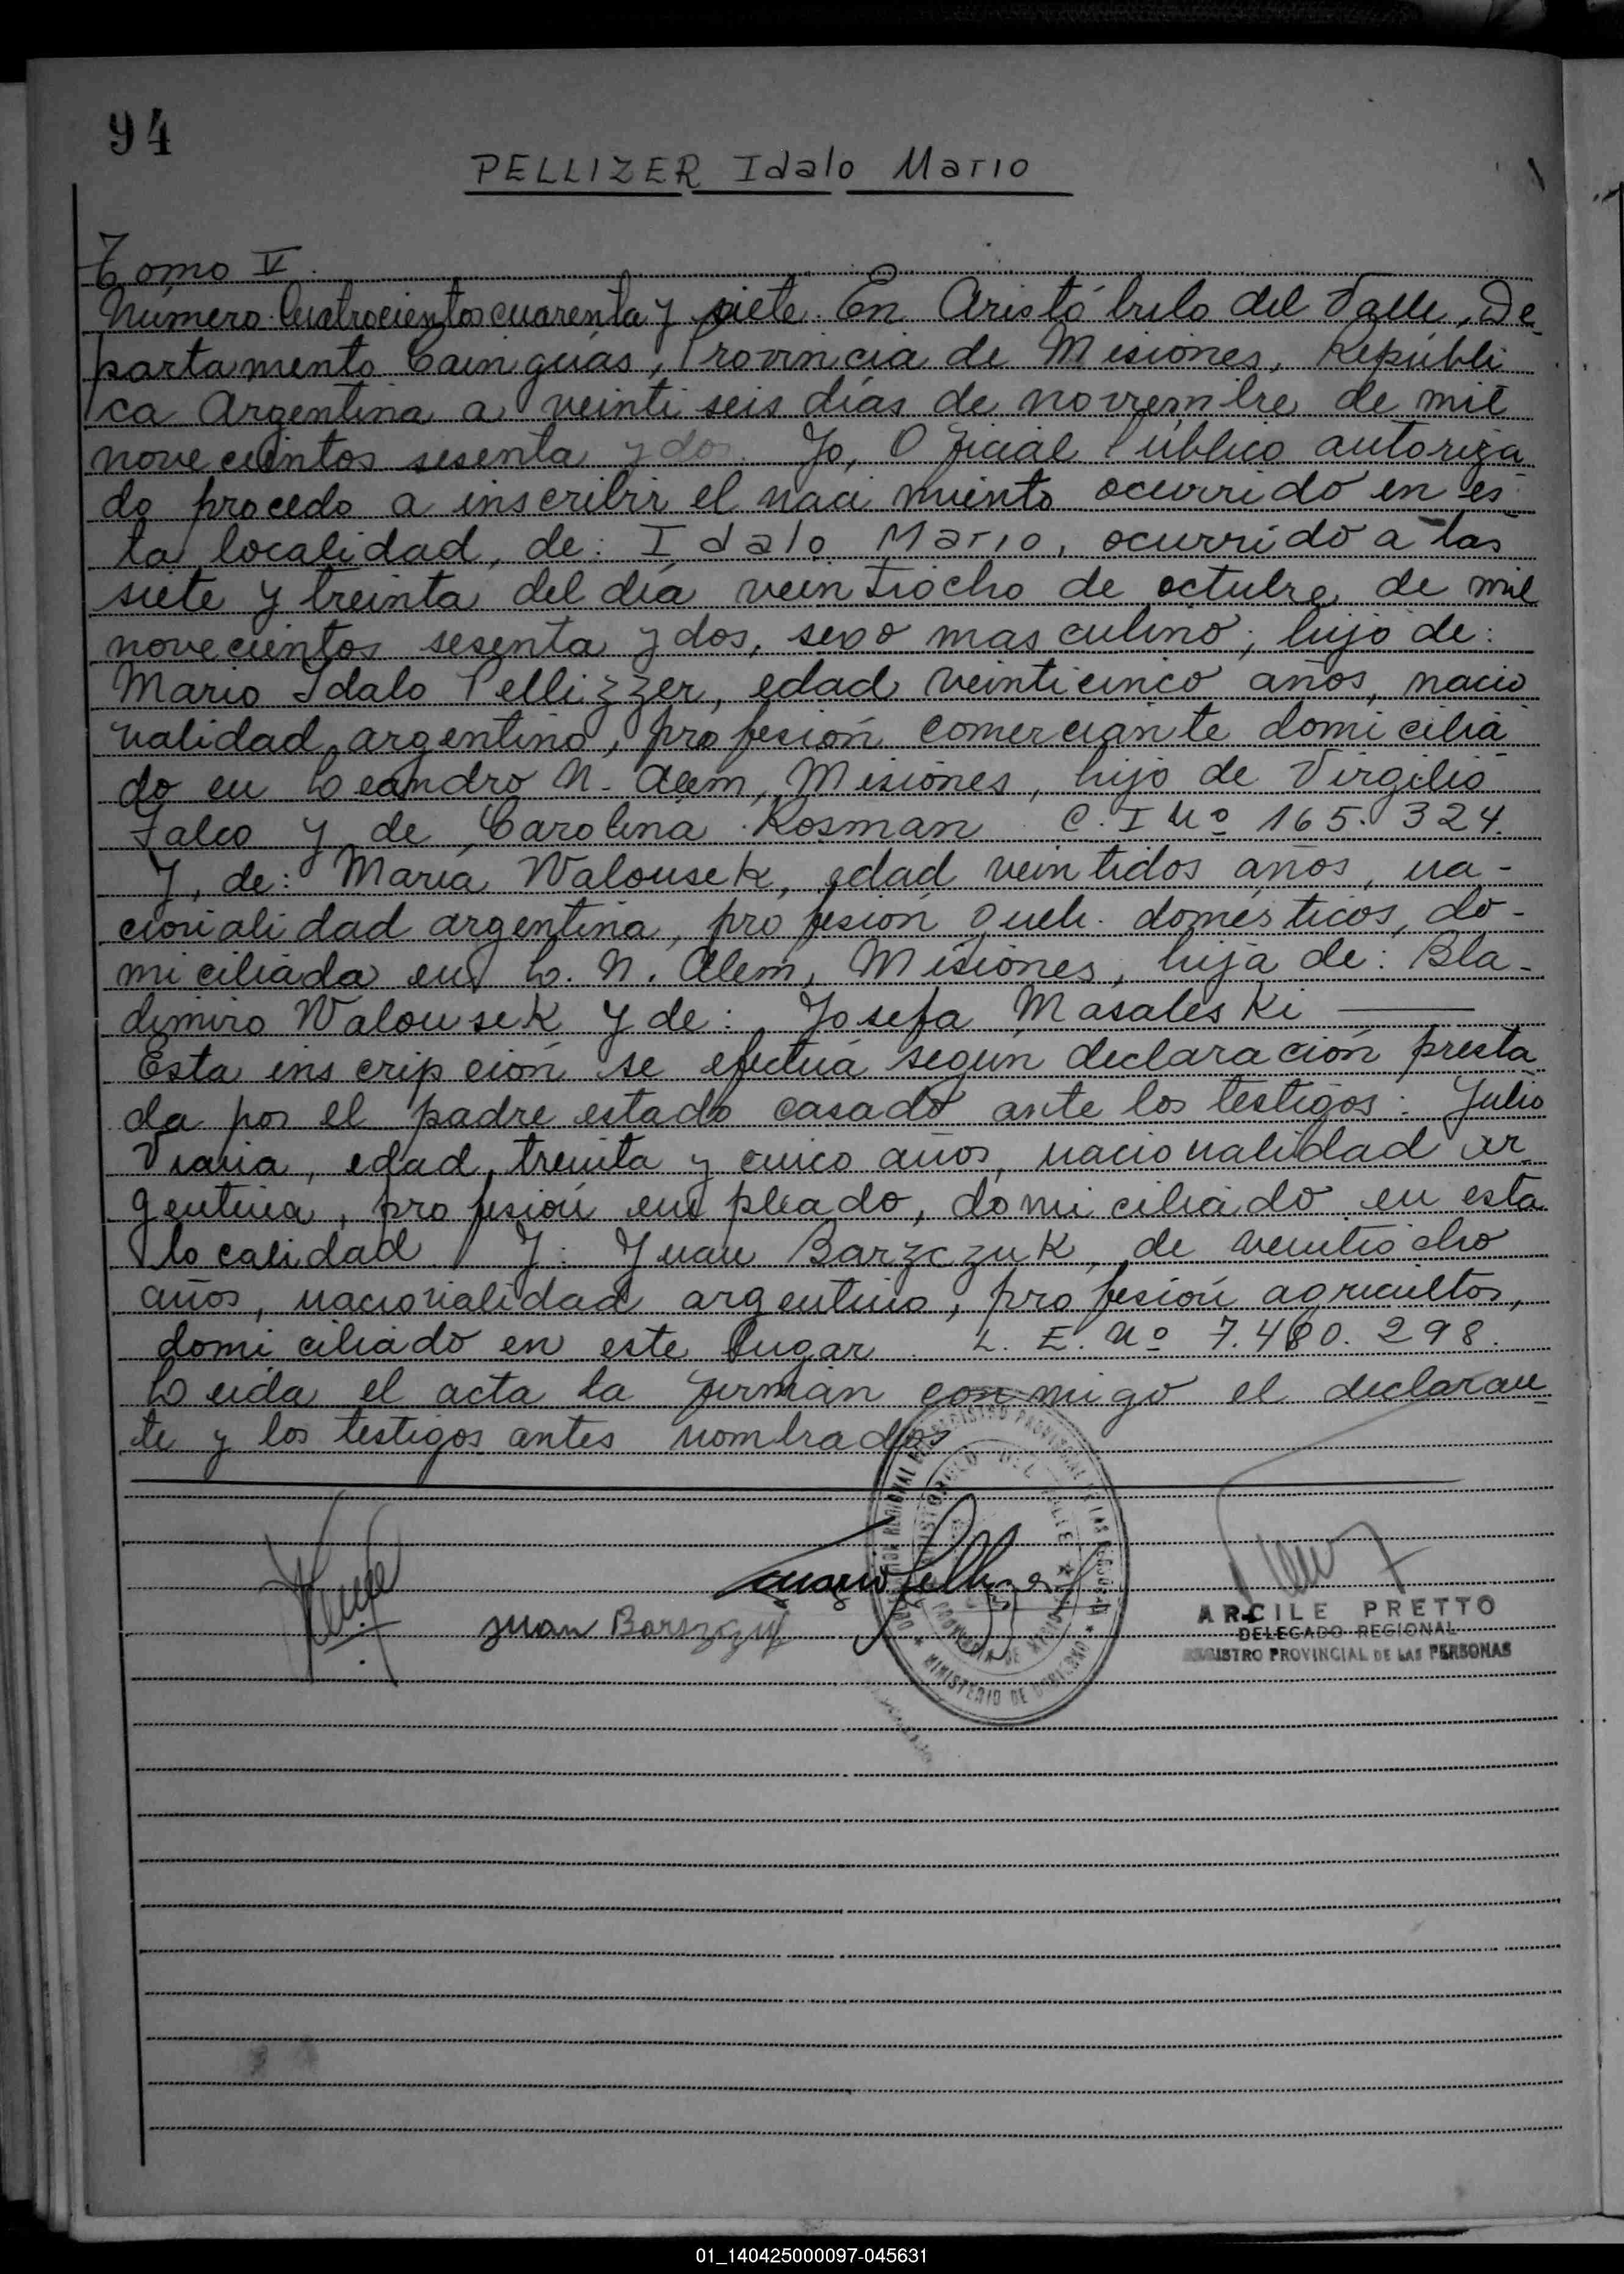 94
PELLIZER Idalo Mario
Tomo V
Número Cuatrocientos cuarenta y siete. En Aristóbulo del Valle, De-
partamento Cainguás, Provincia de Misiones, Repúbli
ca Argentina a veinti seis días de noviembre de mil
novecientos sesenta y dos. Yo, Oficial Público autoriza
do procedo a inscribir el nacimiento ocurrido en es
ta localidad, de: Idalo Mario, ocurrido a las
siete y treinta del día veintiocho de octubre de mil
novecientos sesenta y dos, sexo masculino; hijo de:
Mario Idalo Pellizzer, edad veinticinco años, nacio
nalidad argentino, profesión comerciante domicilia
do en Leandro N. Alem, Misiones, hijo de Virgilio
Falco y de Carolina Kosman C. I Nº 165. 324.
Y, de: María Walousek, edad veintidos años, na-
cionalidad argentina, profesión queh. domésticos, do-
miciliada en L. N. Alem, Misiones, hija de: Bla-
dimiro Walousek y de: Josefa Masaleski
Esta inscripción se efectúa según declaración presta
da por el padre estado casado ante los testigos: Julio
Viana, edad, treinta y cinco años, nacionalidad ar
gentina, profesión empleado, domiciliado en esta
localidad Y: Juan Barzczuk, de veintiocho
años, nacionalidad argentino, profesión agricultor,
domiciliado en este lugar L. E. Nº 7.480.298.
Leida el acta la firman conmigo el declaran
te y los testigos antes nombrados
Mario Pellizzer
Juan Barszczuk
ARCILE PRETTO
DELEGADO REGIONAL
REGISTRO PROVINCIAL DE LAS PERSONAS
REGISTRO PROVINCIAL DE LAS PERSONAS
ARISTOBULO DEL VALLE
PROVINCIA DE MISIONES
MINISTERIO DE GOBIERNO
01_140425000097-045631